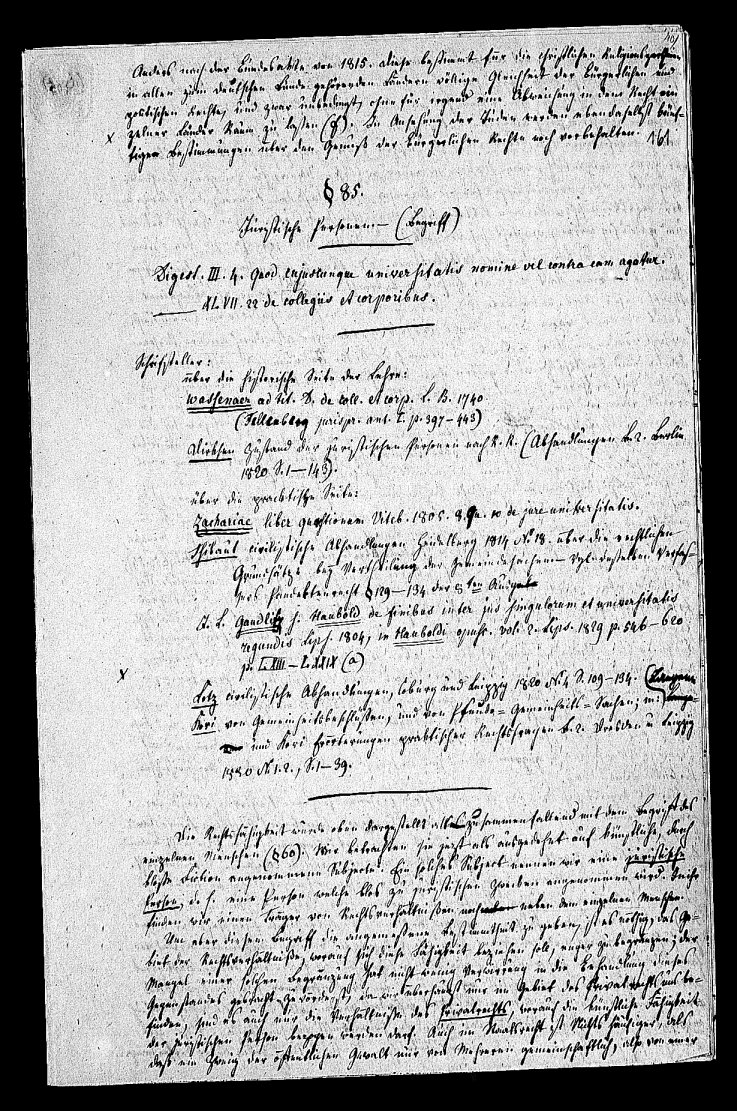 Anders nach der Bundesakte von 1815. Diese bestimmt für die christlichen Religionsparteien
in allen zum deutschen Bunde gehörenden Ländern völlige Gleichheit der bürgerlichen und
politischen Rechte, und zwar unbedingt, ohne für irgend eine Abweichung in dem Recht ein
zelner Länder Raum zu lassen. In Ansehung der Juden werden ebendaselbst künf-
x
tigen Bestimmungen über den Genuß der bürgerlichen Rechte noch vorbehalten. 161
§ 85.
Juristische Personen — (Begriff)
Digest. III. 4. Quod cujuscunque universitatis nomine vel contra eam agatur.
— XLVII. 22 de collegiis et corporibus.
Schriftsteller:
über die historische Seite der Lehre:
Wassenaer ad tit. D. de coll. et corp. L. B. 1740
(Fellenberg jurispr. ant. I. p. 397–443)
Dirksen Zustand der juristischen Personen nach R. R. (Abhandlungen B. 2. Berlin
1820 S. 1–143).
über die practische Seite:
Zachariae liber quaestionum Viteb. 1805. 8. Qu. 10 de jure universitatis.
Thibaut civilistische Abhandlungen Heidelberg 1814 No. 18. über die rechtlichen
Grundsätze bey Vertheilung der Gemeindesachen. Vgl. desselben Verfas-
sers Pandektenrecht § 129–134 der 8ten Ausgabe
Gaudlitz s. Haubold de finibus inter jus singulorum et universitatis
regundis Lips. 1804, in Haubold opusc. vol. 2. Lips. 1829 p. 546–620
p. LXIII–LXXIX (a)
x
Lotz civilistische Abhandlungen, Coburg und Leipzig 1820 No. 4 S. 109–134.
Kori von Gemeinheitsbeschlüssen, und von Gemeinheits-Sachen; in
und Kori Erörterungen praktischer Rechtsfragen B. 2. Dresden u Leipzig
1830 No. 1. 2., S. 1–39.
Die Rechtsfähigkeit wurde oben dargestellt als zusammenfallend mit dem Begriff des
einzelnen Menschen (§ 60). Wir betrachten sie jetzt als ausgedehnt auf künstliche, durch
bloße Fiction angenommene Subjecte. Ein solches Subject nennen wir eine juristische
Person, d. h. eine Person welche blos zu juristischen Zwecken angenommen wird. In ihr
finden wir einen Träger von Rechtsverhältnissen noch neben dem einzelnen Menschen.
Um aber diesem Begriff die angemessene Bestimmtheit zu geben, ist es nöthig, das Ge-
biet der Rechtsverhältnisse, worauf sich diese Fähigkeit beziehen soll, enger zu begränzen; der
Mangel einer solchen Begränzung hat nicht wenig Verwirrung in die Behandlung dieses
Gegenstandes gebracht. Zuvörderst, da wir überhaupt nur im Gebiet des Privatrechts uns be-
finden, sind es auch nur die Verhältnisse des Privatrechts, worauf die künstliche Fähigkeit
der juristischen Person bezogen werden darf. Auch im Staatsrecht ist Nichts häufiger, als
daß ein Zweig der öffentlichen Gewalt nur von Mehreren gemeinschaftlich, also von einer